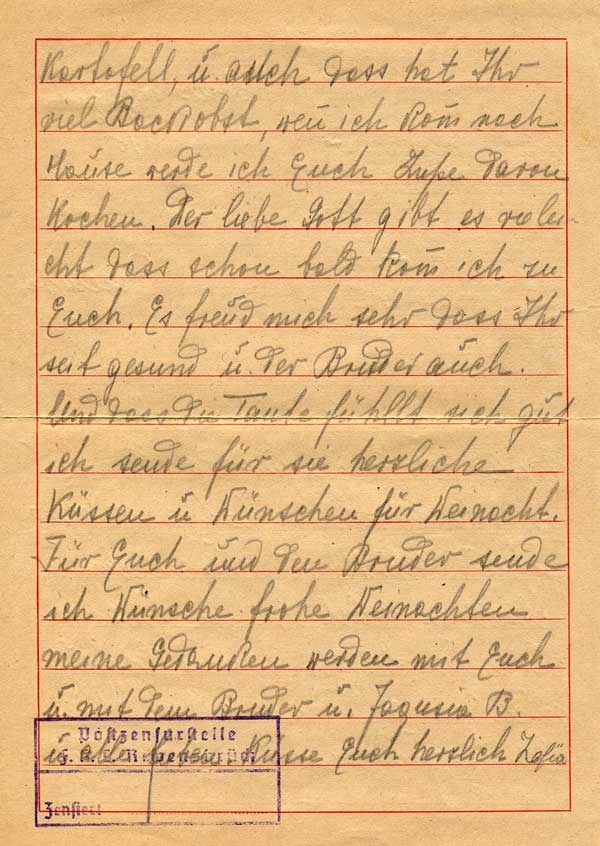 Kartofell, ü. auch dass hat Ihr
viel Backobst, weñ ich kom̃ nach
Hause werde ich Euch Zupe davon
Kochen. Der liebe Gott gibt es vielei-
cht dass schon bald kom̃ ich zu
Euch. Es freud mich sehr dass Ihr
seit gesund ü. der Bruder auch.
Und dass die Tante fühllt sich gut
ich sende für sie herzliche
Küssen ü Wünschen für Weinacht.
Für Euch und den Bruder sende
ich Wünsche frohe Weinachten
meine Gedanken werden mit Euch
ü. mit dem Bruder ü. Jagusia B.
ü. Küsse Euch herzlich Zofia
Postzensurstelle
F. K. L. Ravensbrück
Zensiert